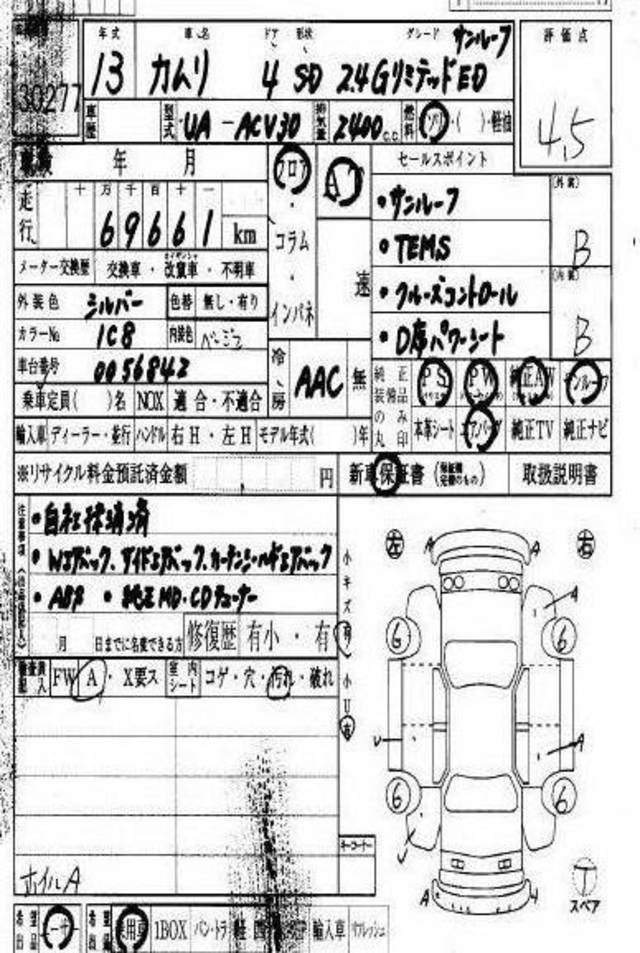 年式 車名 ドア 形状 グレード サンルーフ 評価点
30277 13 カムリ 4 SD 2.4Gリミテッド ED 4.5
車歴 型式 UA-ACV30 排気量 2400 c.c. 燃料 ・( )・軽油
年 月 フロア AT セールスポイント
走行 十 万 千 百 十 一 ・サンルーフ (外装)
69661 km コラム ・TEMS B
メーター交換歴 交換車・改竄車・不明車 速 ・クルーズコントロール (内装)
外装色 シルバー 色替 無し・有り インパネ ・D席パワーシート B
カラーNo 1C8 内装色 ベージュ
車台番号 0056842 冷房 AAC 無 純正装備品のみ丸印 PS PW 純正AW サンルーフ
乗車定員( )名 NOX 適合・不適合 本革シート エアバッグ 純正TV 純正ナビ
輸入車 ディーラー・並行 ハンドル 右H・左H モデル年式( )年
※リサイクル料金預託済金額 円 新車保証書 取扱説明書
注意事項 ・自社抹消済
・Wエアバック、サイドエアバック、カーテンシールドエアバック
・ABS ・純正MD・CDチューナー
月 日までに名変できる方 修復歴 有小・有
FW A・X要ス 室内シート コゲ・穴・汚れ・破れ
小キズ 有 小U 有
左 右
A A
A
6 6
U A
6 6
U
A U
キーコーナー
ホイルA
T スペア
希望出品 希望出品 乗用車 1BOX バン・トラ 軽 輸入車 リフレッシュ